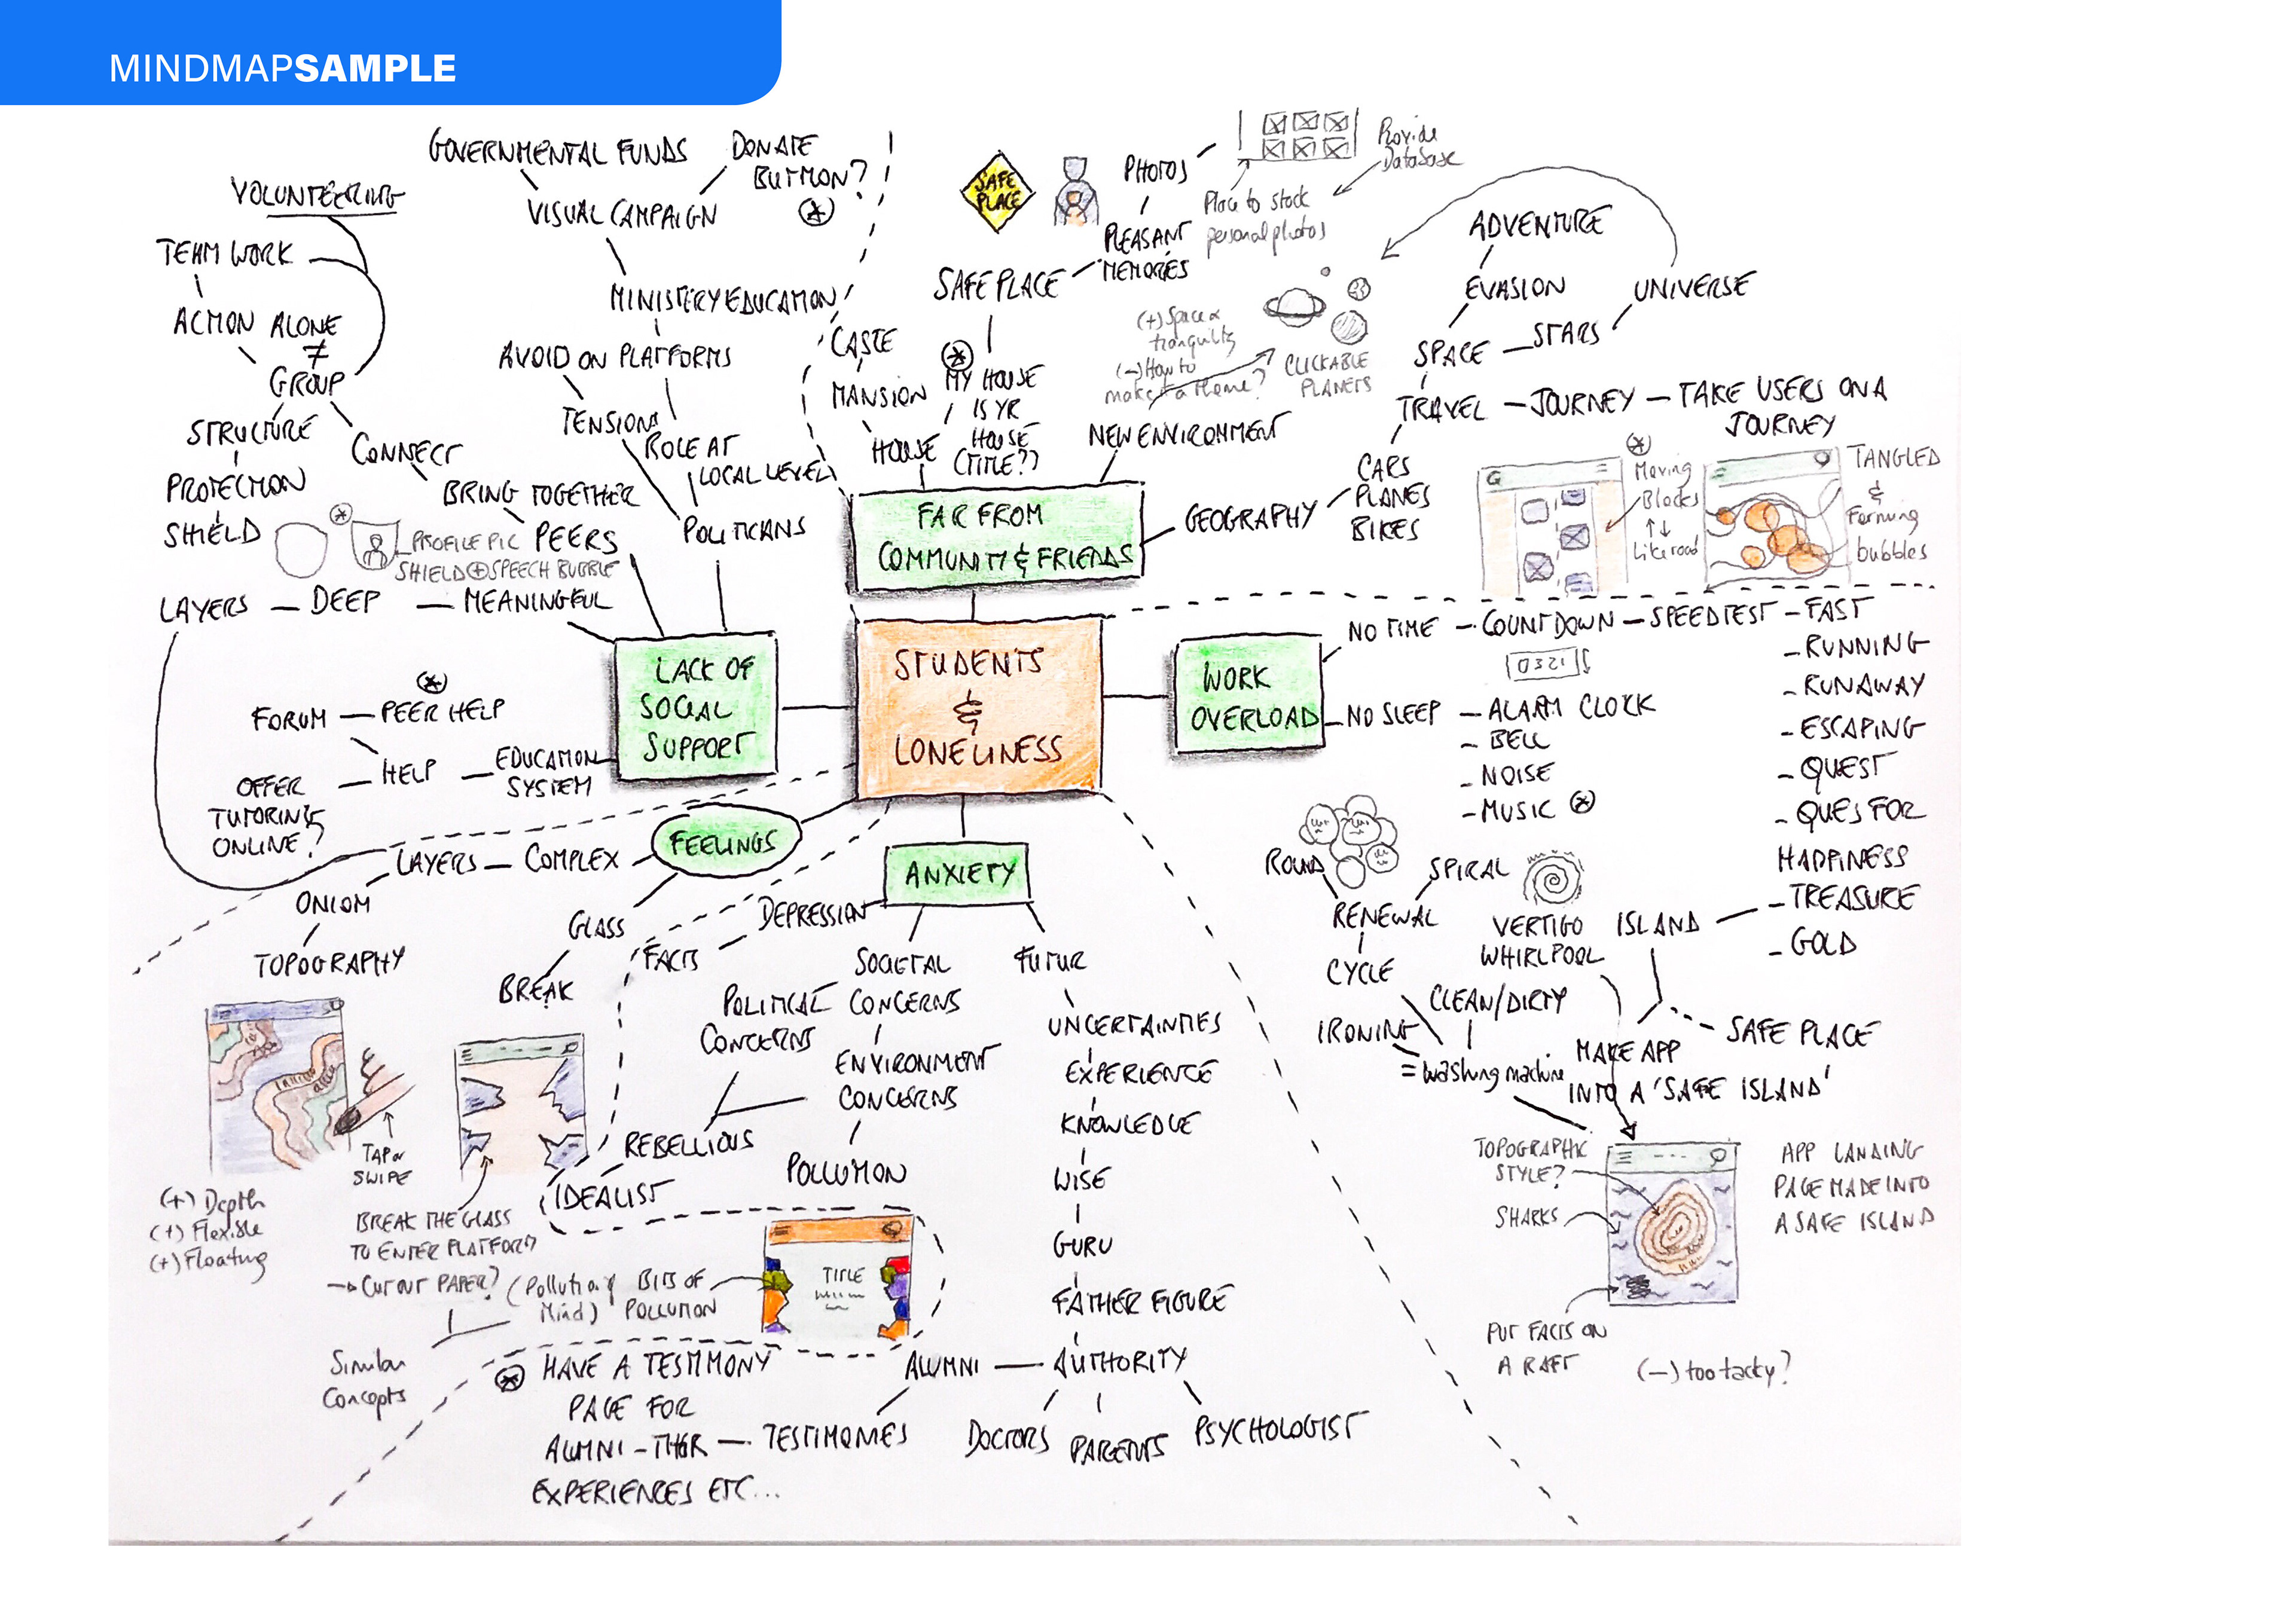 MINDMAPSAMPLE
GOVERNMENTAL FUNDS
DONATE
BUTTON?
VOLUNTEERING
VISUAL CAMPAIGN
TEAM WORK
MINISTERY EDUCATION
ACTION ALONE
≠
GROUP
AVOID ON PLATFORMS
STRUCTURE
TENSIONS
ROLE AT
LOCAL LEVEL
CONNECT
PROTECTION
BRING TOGETHER
SHIELD
PEERS
POLITICIANS
PROFILE PIC
SHIELD + SPEECH BUBBLE
LAYERS — DEEP — MEANINGFUL
LACK OF
SOCIAL
SUPPORT
FORUM — PEER HELP
HELP — EDUCATION
SYSTEM
OFFER
TUTORING
ONLINE?
SAFE
PLACE
PHOTOS
Provide
Database
Place to stock
personal photos
PLEASANT
MEMORIES
SAFE PLACE
CASTE
MANSION
HOUSE
MY HOUSE
IS YR
HOUSE
(TITLE??)
(+) Space =
tranquility
(-) How to
make it a theme?
CLICKABLE
PLANETS
NEW ENVIRONMENT
FAR FROM
COMMUNITY & FRIENDS
ADVENTURE
EVASION
UNIVERSE
SPACE — STARS
TRAVEL — JOURNEY — TAKE USERS ON A
JOURNEY
GEOGRAPHY
CARS
PLANES
BIKES
G
Moving
Blocks
Like road
TANGLED
&
Forming
bubbles
STUDENTS
&
LONELINESS
WORK
OVERLOAD
NO TIME — COUNTDOWN — SPEEDTEST — FAST
0321
- RUNNING
- RUNAWAY
- ESCAPING
- QUEST
- QUEST FOR
HAPPINESS
- TREASURE
- GOLD
NO SLEEP — ALARM CLOCK
- BELL
- NOISE
- MUSIC
ROUND
SPIRAL
RENEWAL
VERTIGO
WHIRLPOOL
ISLAND
CYCLE
CLEAN/DIRTY
IRONING
= Washing machine
MAKE APP
INTO A 'SAFE ISLAND'
SAFE PLACE
TOPOGRAPHIC
STYLE?
SHARKS
APP LANDING
PAGE MADE INTO
A SAFE ISLAND
PUT FACTS ON
A RAFT
(-) too tacky?
FEELINGS
LAYERS — COMPLEX
ONION
TOPOGRAPHY
GLASS
BREAK
TAP or
SWIPE
(+) Depth
(+) Flexible
(+) Floating
BREAK THE GLASS
TO ENTER PLATFORM
→ CUT OUT PAPER?
(Pollution of
Mind)
BITS OF
POLLUTION
TITLE
Similar
Concepts
ANXIETY
DEPRESSION
FACTS
SOCIETAL
CONCERNS
POLITICAL
CONCERNS
ENVIRONMENT
CONCERNS
REBELLIOUS
IDEALIST
POLLUTION
FUTUR
UNCERTAINTIES
EXPERIENCE
KNOWLEDGE
WISE
GURU
FATHER FIGURE
ALUMNI — AUTHORITY
DOCTORS
PARENTS
PSYCHOLOGIST
TESTIMONIES
HAVE A TESTIMONY
PAGE FOR
ALUMNI - THEIR
EXPERIENCES ETC...